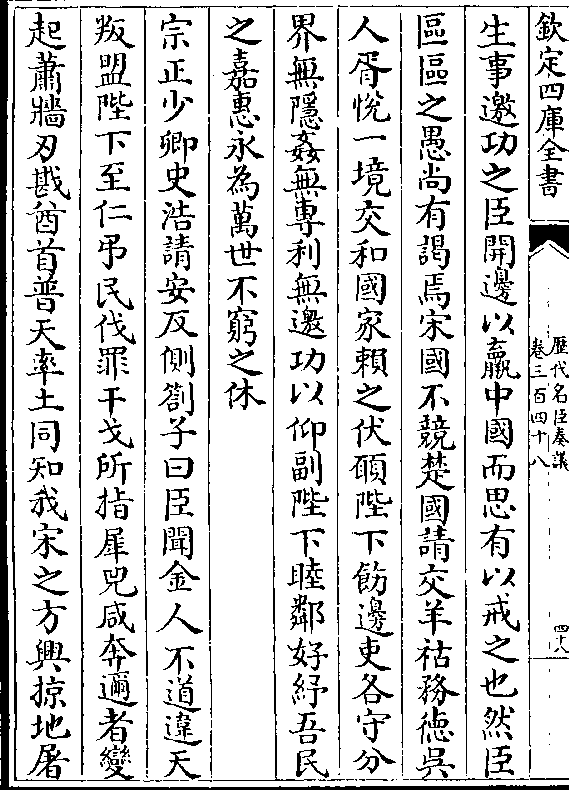 欽定四庫全書
歷代名臣奏議
卷三百四十八
四十八
生事邀功之臣開邊以羸中國而思有以戒之也然臣
區區之愚尚有謁焉宋國不競楚國請交羊祜務徳吳
人胥悅一境交和國家賴之伏願陛下飭邊吏各守分
界無隱姦無專利無邀功以仰副陛下睦鄰好紓吾民
之嘉惠永為萬世不窮之休
宗正少卿史浩請安反側劄子曰臣聞金人不道違天
叛盟陛下至仁弔民伐罪干戈所指犀兕咸奔邇者變
起蕭牆刃戡酋首普天率土同知我宋之方興掠地屠